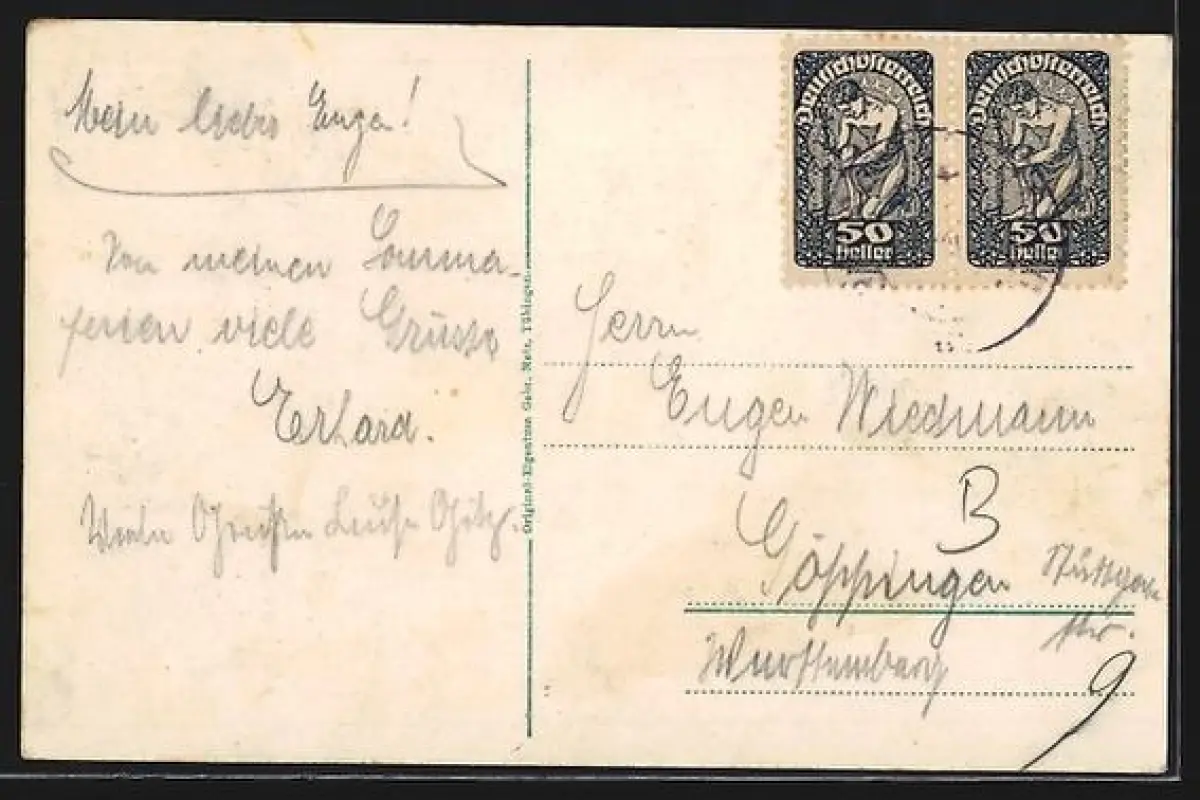 Mein lieber Eugen!
Von meinen Sommer-
ferien viele Grüsse
Erhard.
Viele Luise
Original-Eigentum Gebr. Metz, Tübingen.
Deutschösterreich
50
heller
Deutschösterreich
50
heller
Herrn
Eugen Wiedmann
B
Göppingen
Stuttgarter
Str.
9
Württemberg